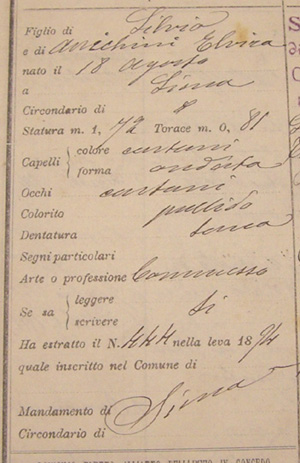 Figlio di Silvio
e di Anichini Elvira
nato il 18 Agosto
a Siena
Circondario di "
Statura m. 1, 72 Torace m. 0, 81
Capelli { colore castani
forma ondata
Occhi castani
Colorito pallido
Dentatura sana
Segni particolari
Arte o professione Commesso
Se sa { leggere
scrivere Si
Ha estratto il N. 444 nella leva 1894
quale inscritto nel Comune di
Mandamento di Siena
Circondario di